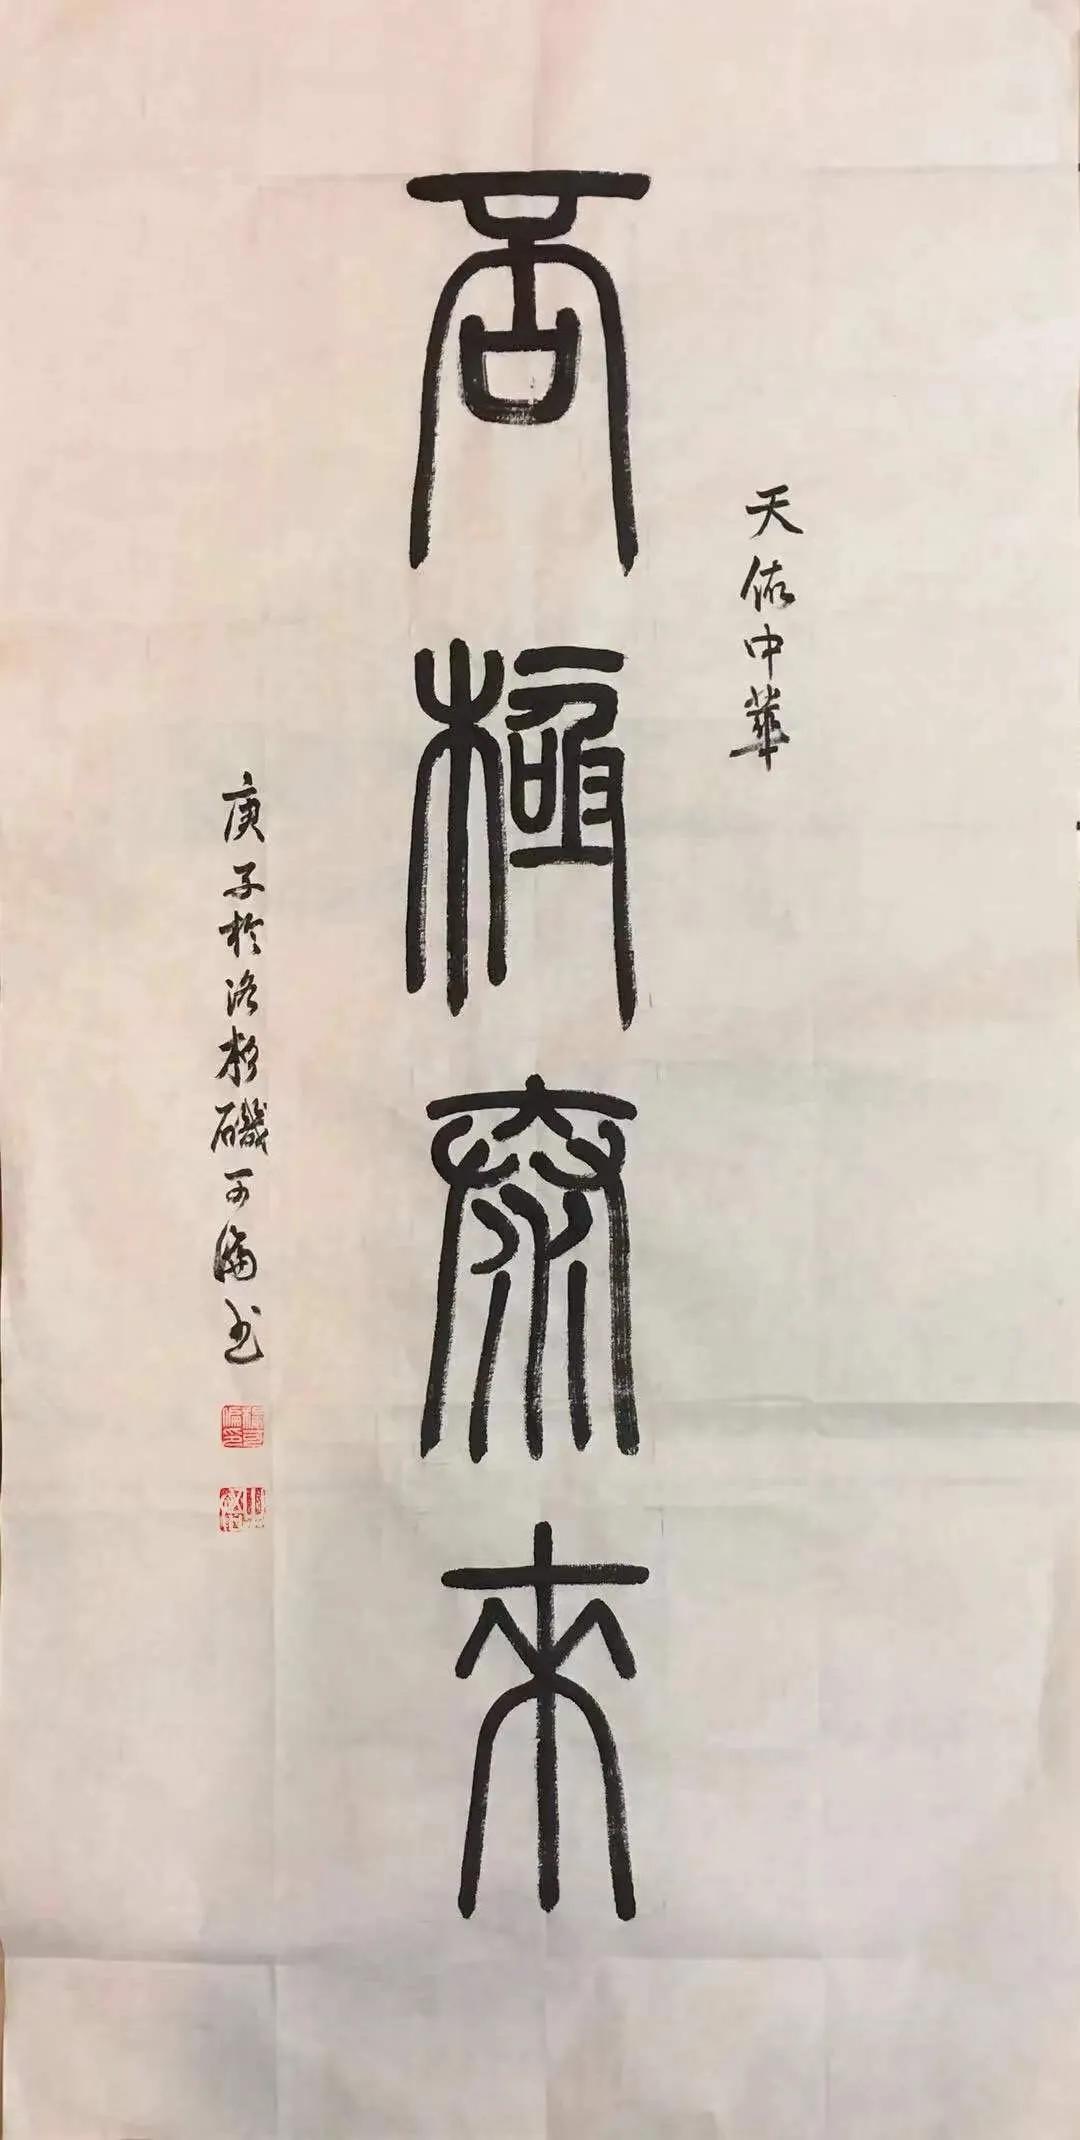 天佑中華
否極泰來
庚子於洛杉磯可倫书